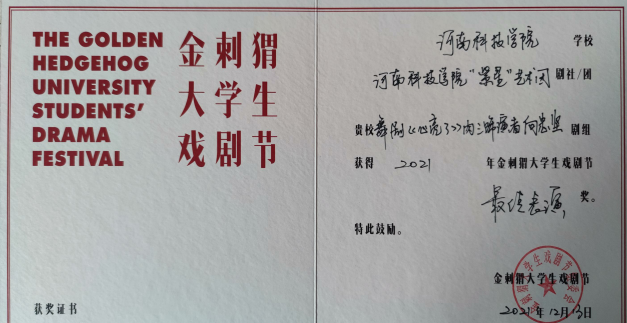 THE GOLDEN
HEDGEHOG
UNIVERSITY
STUDENTS'
DRAMA
FESTIVAL
金刺猬
大学生
戏剧节
获奖证书
河南科技学院 学校
河南科技学院“繁星”艺术团 剧社/团
贵校舞剧《心亮了》 演者何忠 剧组
获得 2021 年金刺猬大学生戏剧节
最佳表演 奖。
特此鼓励。
金刺猬大学生戏剧节
2021年12月13日